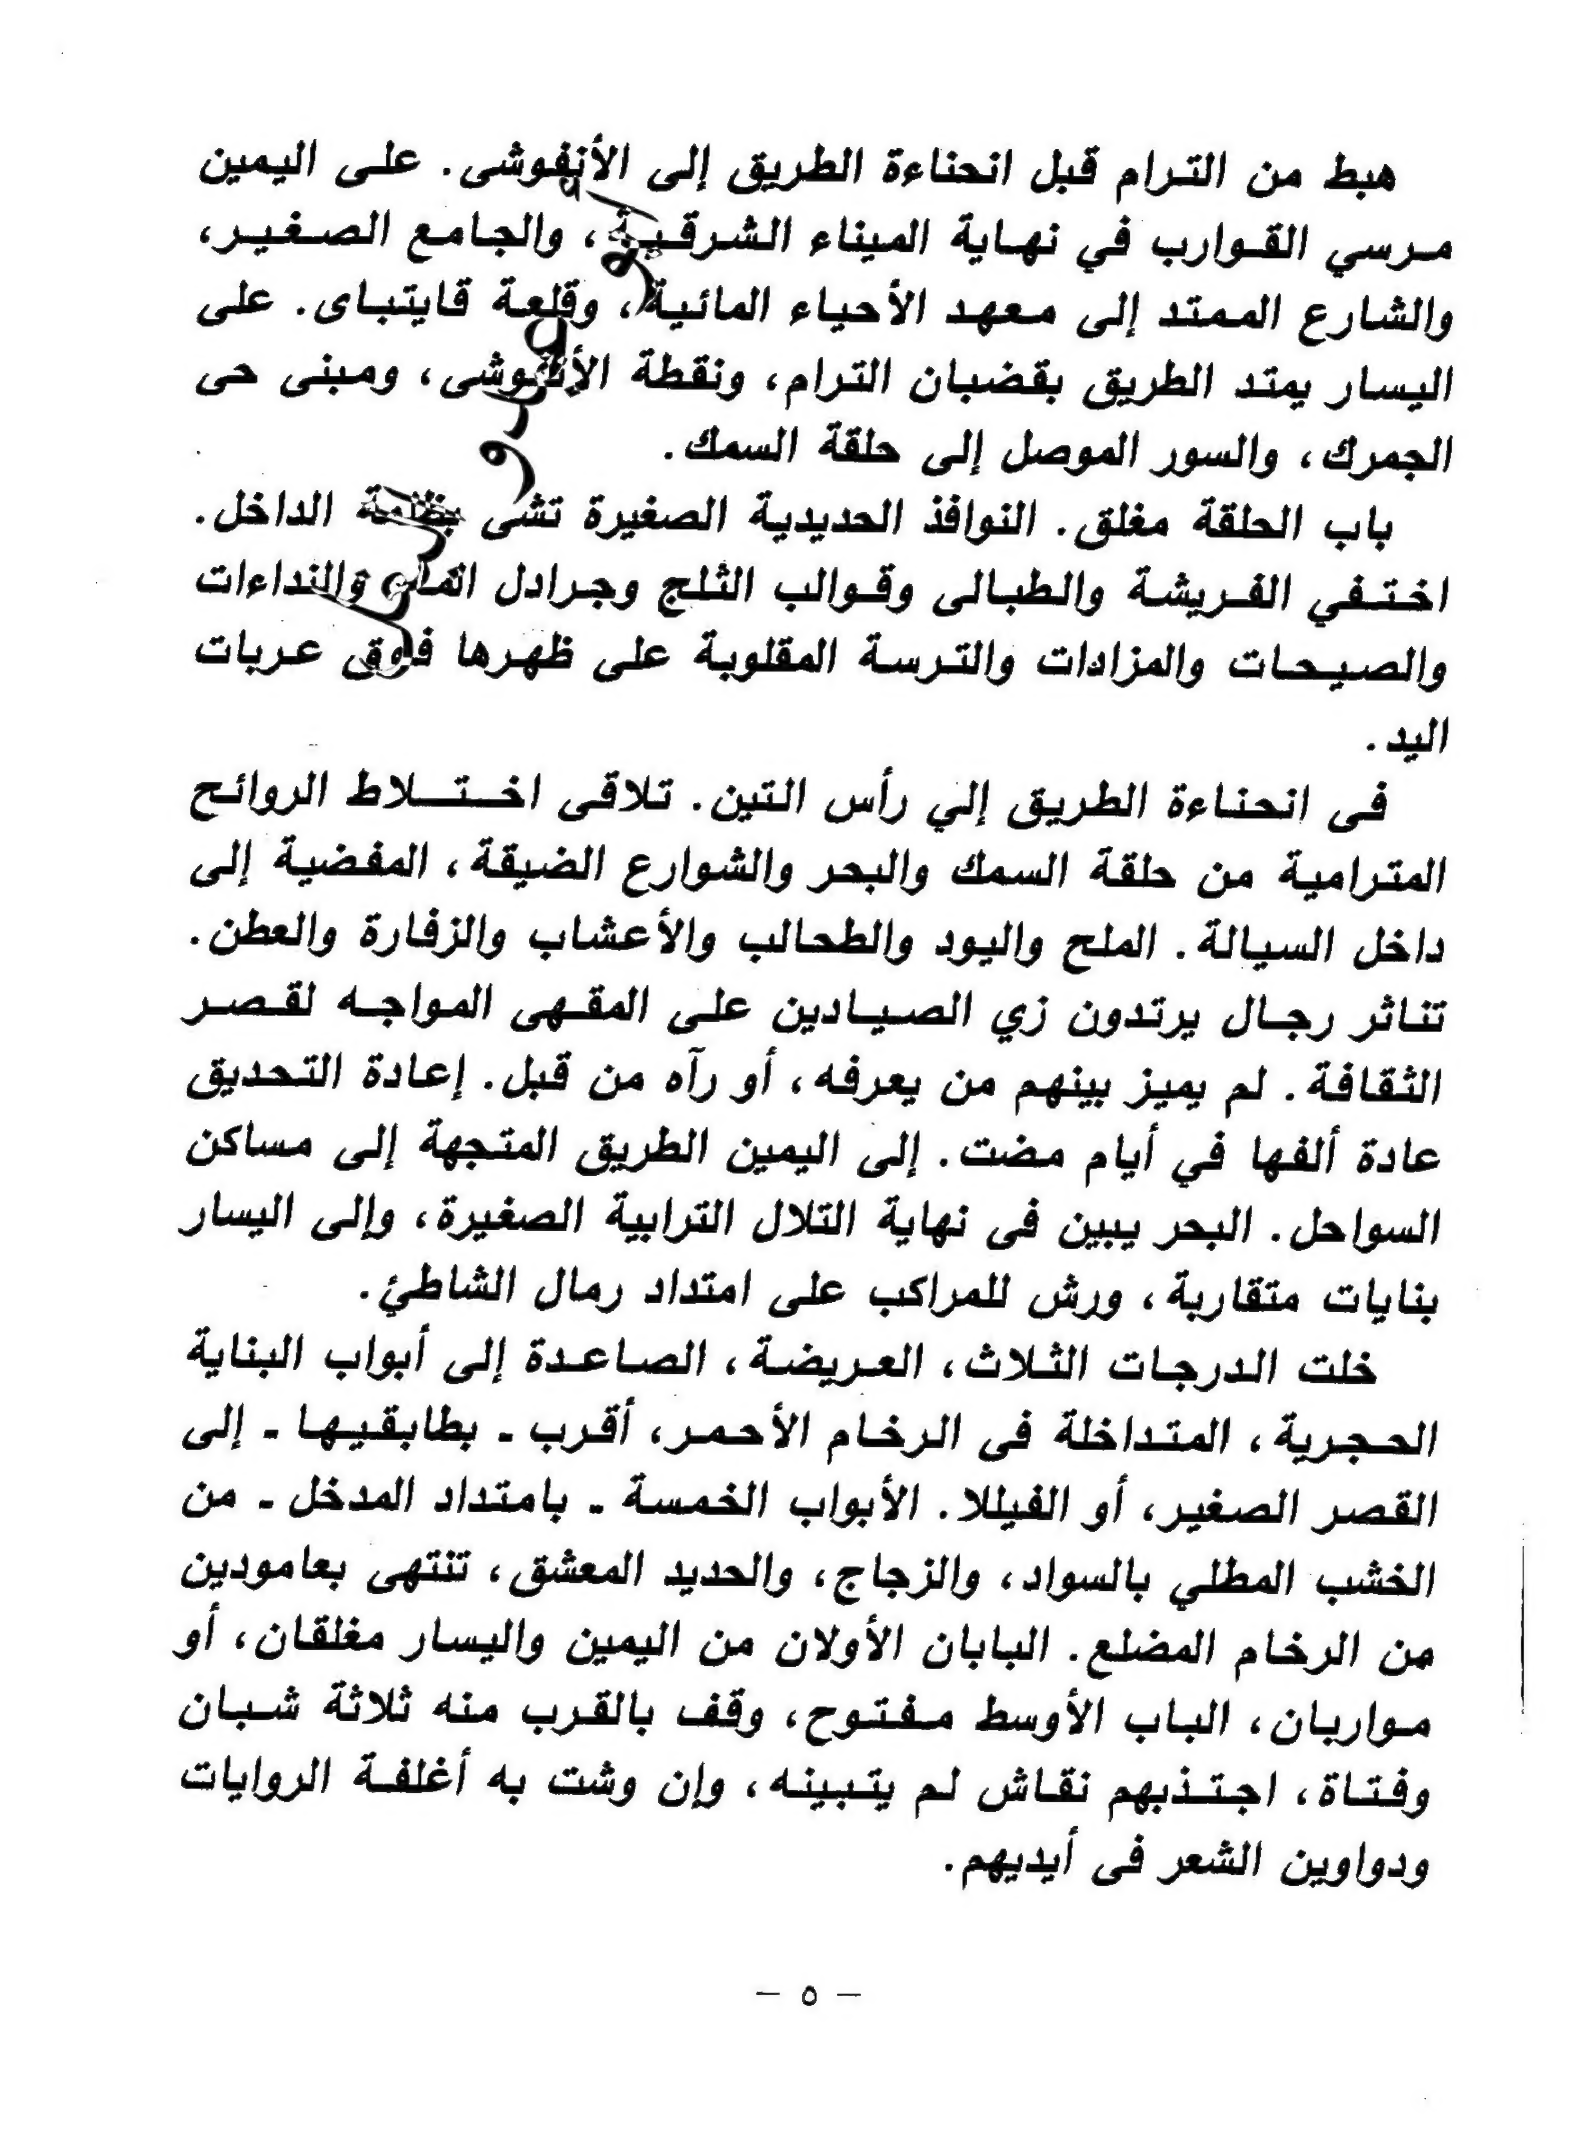 هبط من الترام قبل انحناءة الطريق إلى الأنفوشى. على اليمين
مرسي القوارب في نهاية الميناء الشرقية، والجامع الصغير،
والشارع الممتد إلى معهد الأحياء المائية، وقلعة قايتباى. على
اليسار يمتد الطريق بقضبان الترام، ونقطة الأنفوشى، ومبنى حى
الجمرك، والسور الموصل إلى حلقة السمك.
باب الحلقة مغلق. النوافذ الحديدية الصغيرة تشى بظلمة الداخل.
اختفي الفريشة والطبالى وقوالب الثلج وجرادل الماء والنداءات
والصيحات والمزادات والترسة المقلوبة على ظهرها فوق عربات
اليد.
فى انحناءة الطريق إلي رأس التين. تلاقى اختلاط الروائح
المترامية من حلقة السمك والبحر والشوارع الضيقة، المفضية إلى
داخل السيالة. الملح واليود والطحالب والأعشاب والزفارة والعطن.
تناثر رجال يرتدون زي الصيادين على المقهى المواجه لقصر
الثقافة. لم يميز بينهم من يعرفه، أو رآه من قبل. إعادة التحديق
عادة ألفها في أيام مضت. إلى اليمين الطريق المتجهة إلى مساكن
السواحل. البحر يبين فى نهاية التلال الترابية الصغيرة، وإلى اليسار
بنايات متقاربة، ورش للمراكب على امتداد رمال الشاطئ.
خلت الدرجات الثلاث، العريضة، الصاعدة إلى أبواب البناية
الحجرية، المتداخلة فى الرخام الأحمر، أقرب ـ بطابقيها ـ إلى
القصر الصغير، أو الفيللا. الأبواب الخمسة ـ بامتداد المدخل ـ من
الخشب المطلي بالسواد، والزجاج، والحديد المعشق، تنتهى بعامودين
من الرخام المضلع. البابان الأولان من اليمين واليسار مغلقان، أو
مواربان، الباب الأوسط مفتوح، وقف بالقرب منه ثلاثة شبان
وفتاة، اجتذبهم نقاش لم يتبينه، وإن وشت به أغلفة الروايات
ودواوين الشعر فى أيديهم.
– ٥ –